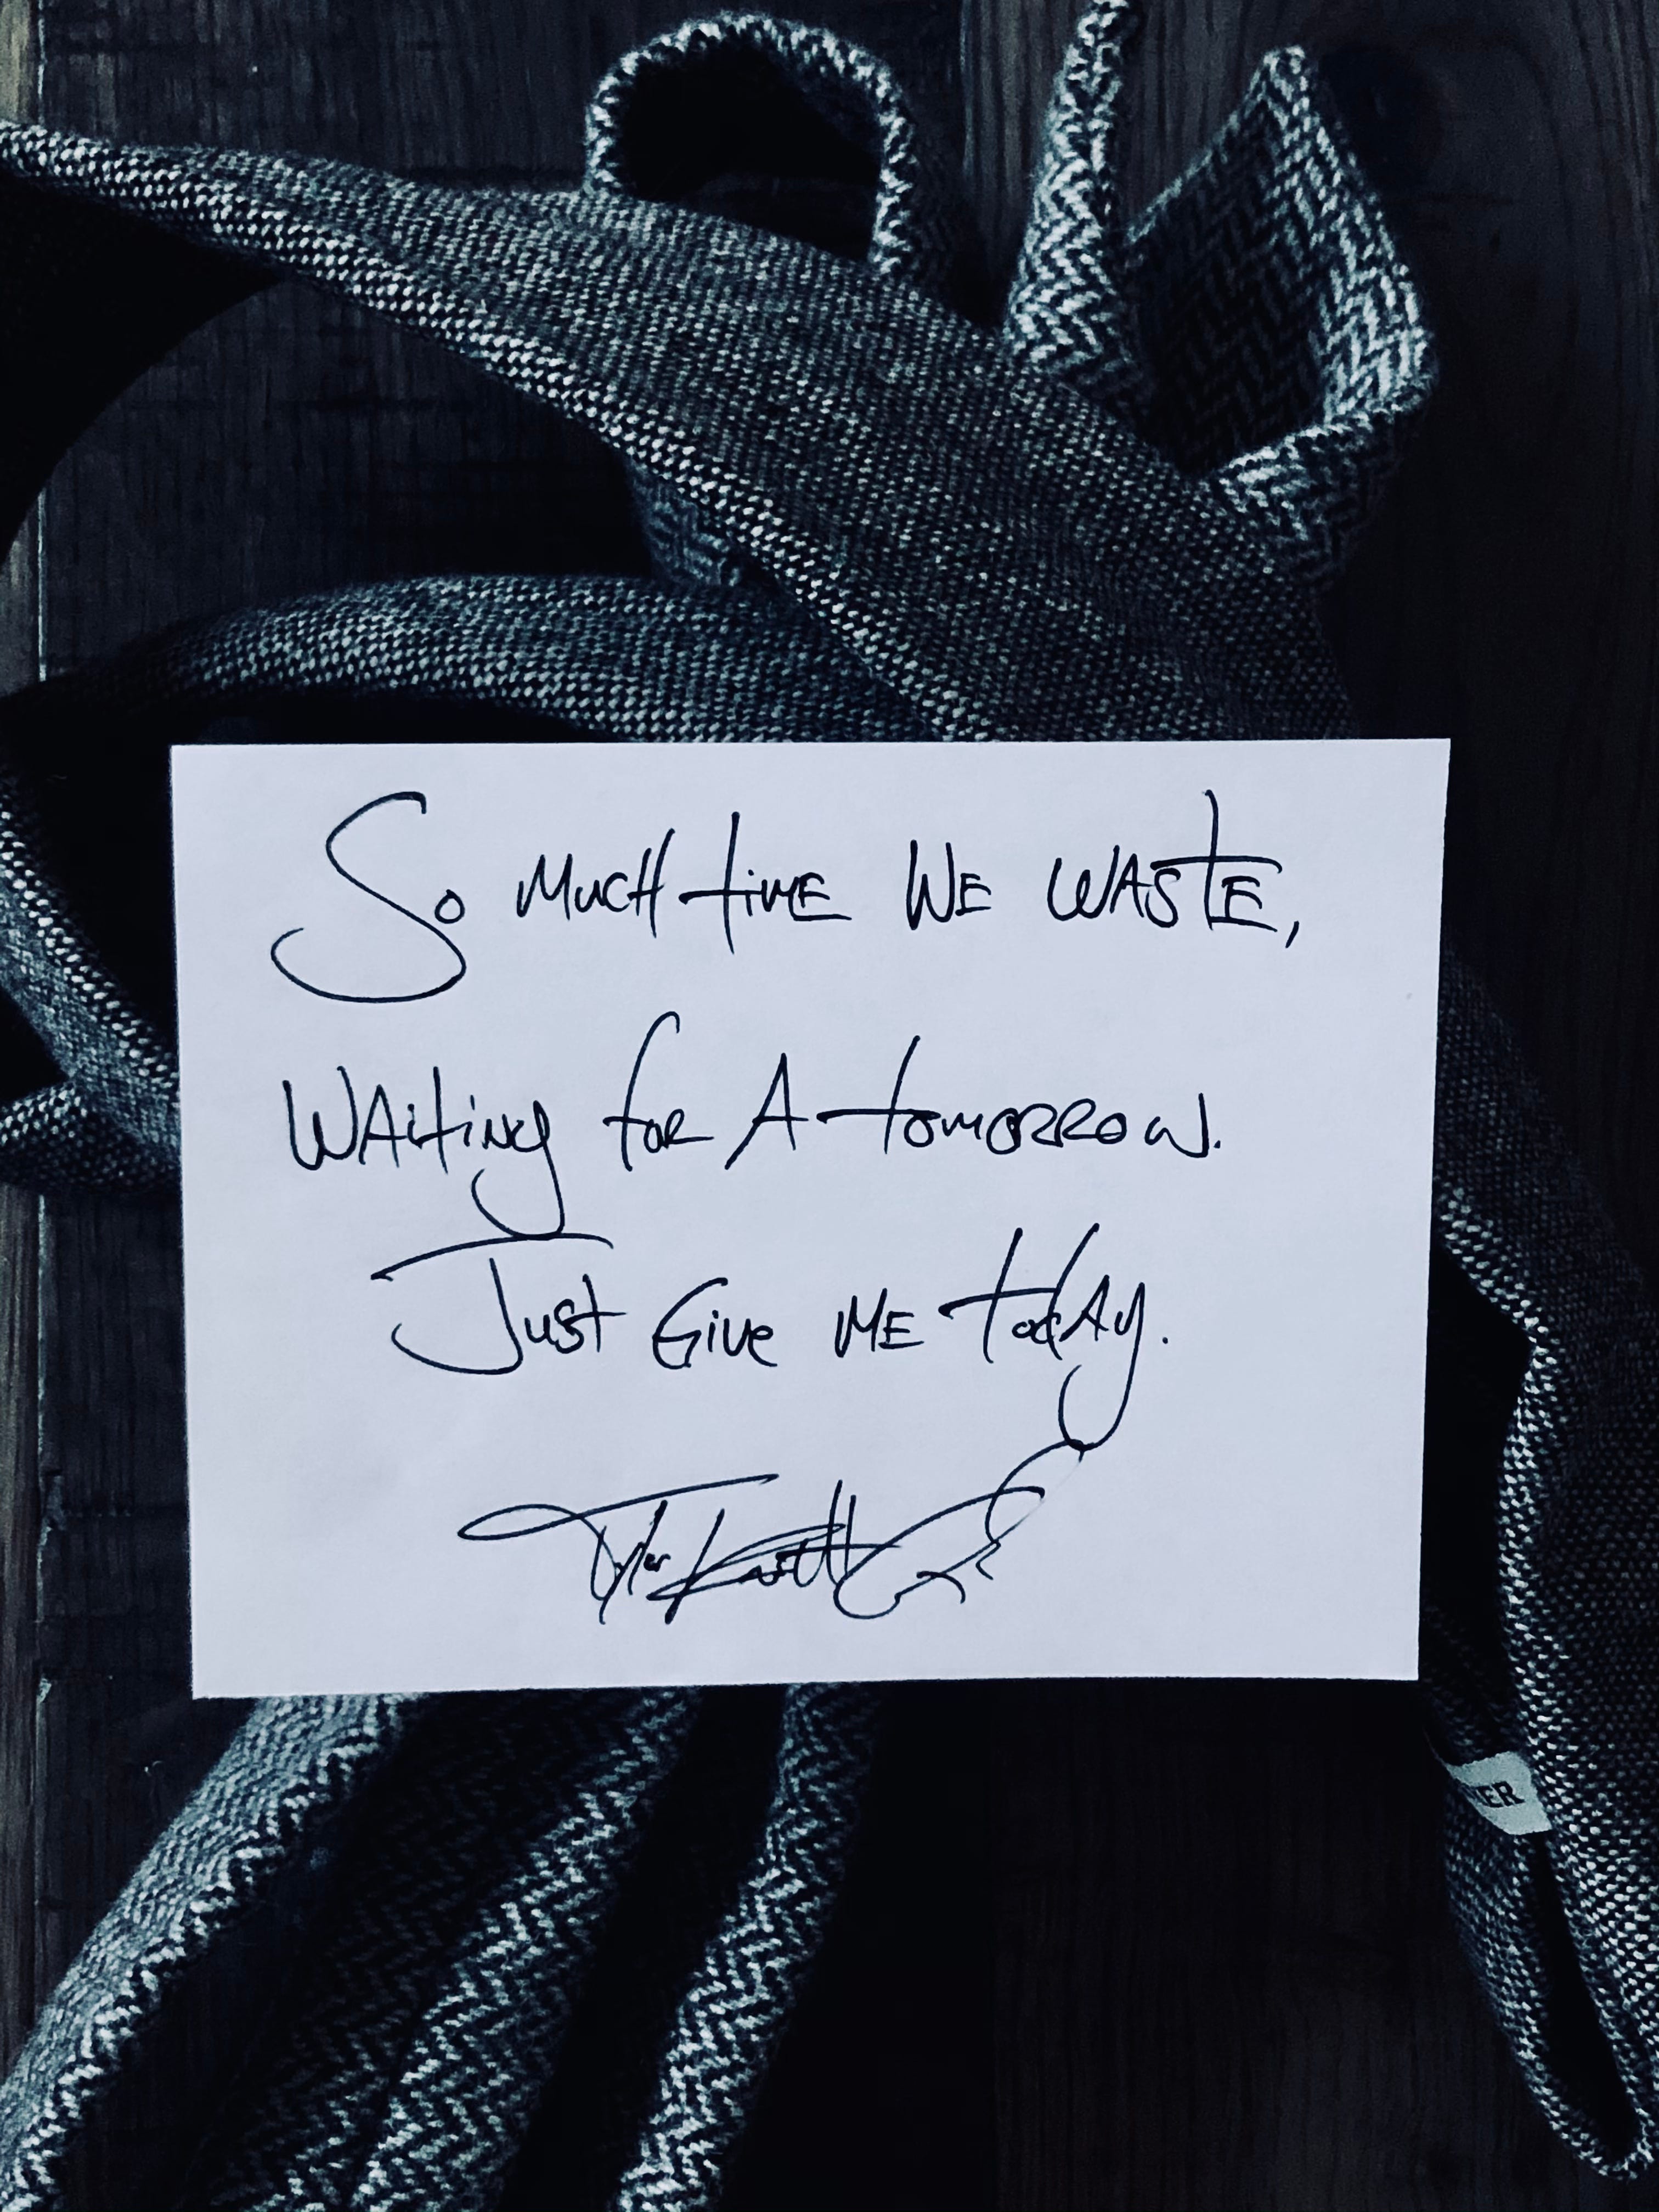 So much time we waste,
waiting for a tomorrow.
Just give me today.
Tyler Knott